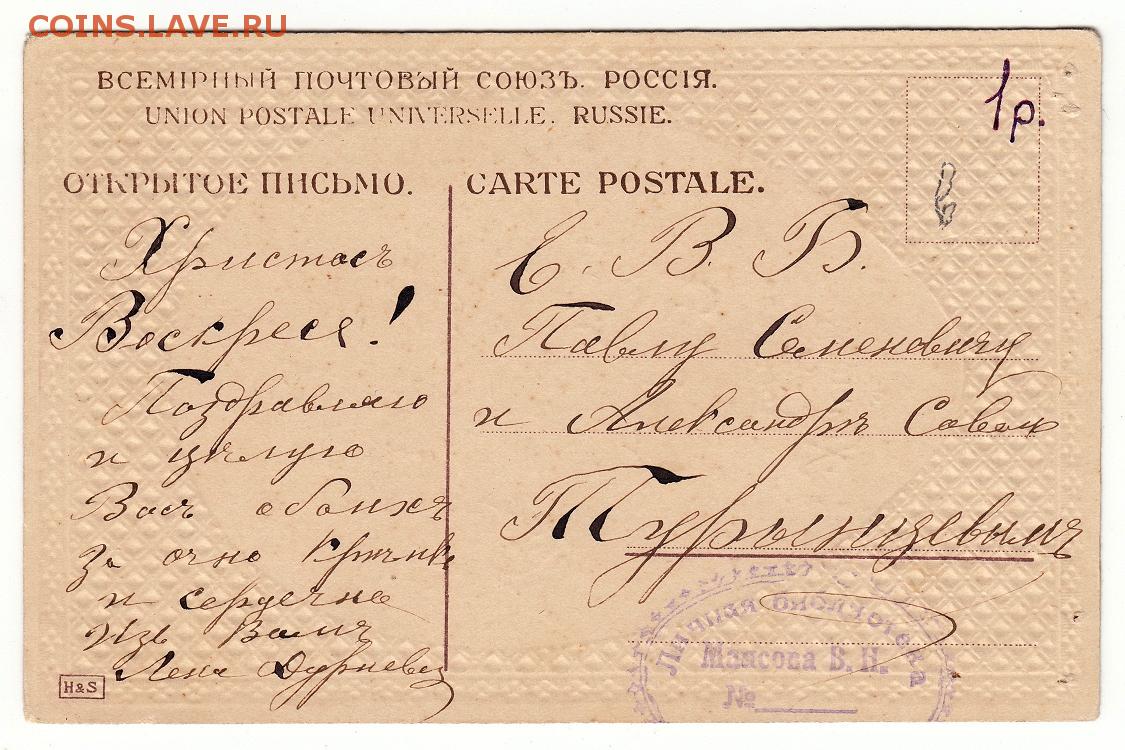 COINS.LAVE.RU
ВСЕМІРНЫЙ ПОЧТОВЫЙ СОЮЗЪ. РОССІЯ.
UNION POSTALE UNIVERSELLE. RUSSIE.
1р.
ОТКРЫТОЕ ПИСЬМО.
CARTE POSTALE.
Христосъ
Воскресе!
Поздравляю
и цѣлую
Васъ обоихъ
за очно крѣпко
и сердечно
Лена
H&S
Е. В. Б.
Павлу Семеновичу
и Александрѣ
Турынцевымъ
Личная библиотека
Маясова В. Н.
№